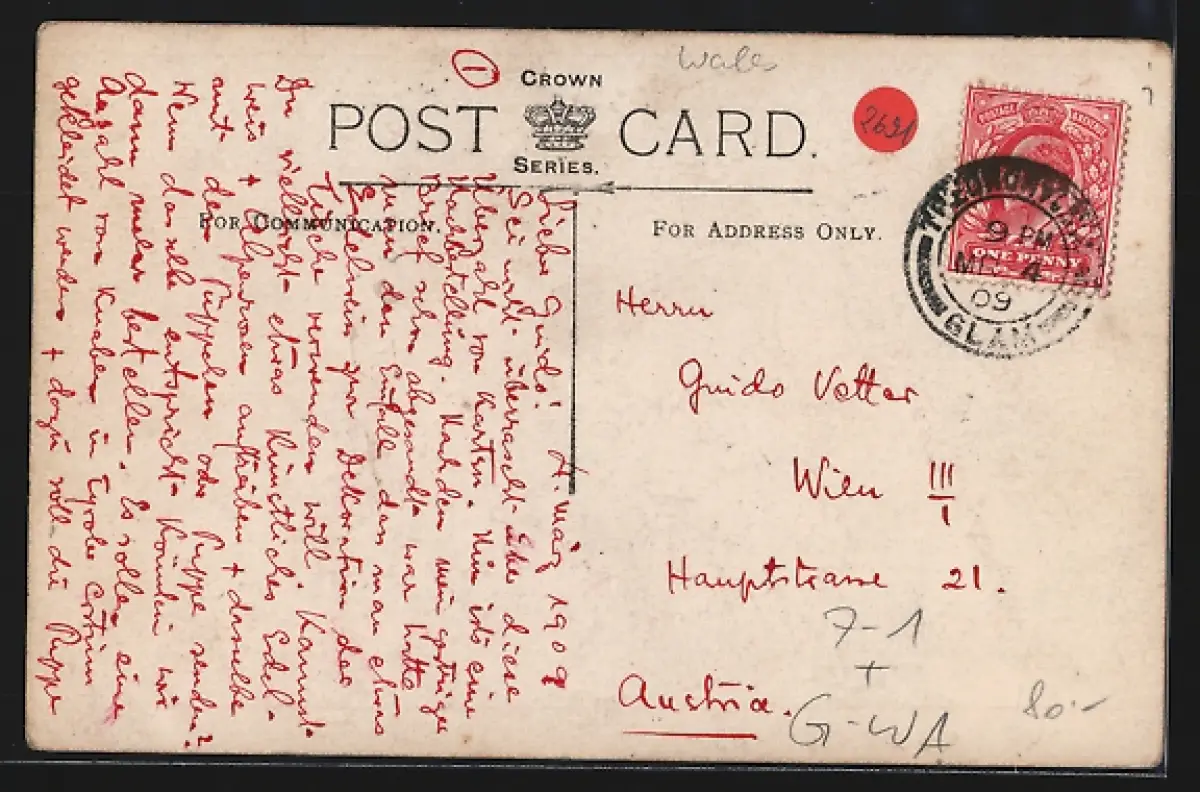 Wales
①
CROWN
POST CARD.
SERIES.
2691
FOR COMMUNICATION.
FOR ADDRESS ONLY.
POSTAGE REVENUE
ONE PENNY
9 PM
MR 4
09
GLAM
4. März 1909
Lieber Guido!
Sei nicht überrascht über diese
Überzahl von Karten. Nun ists eine
Nachbestellung. Nachdem mein gestriger
Brief schon abgesandt war hatte
man den Einfall dass man etwas
Edelweiss zur Dekoration der
Tische verwenden will. Kannst
Du vielleicht etwas künstliches Edel-
weis + Alpenrosen auftreiben + dasselbe
mit den oder Puppe senden?
Wenn dasselbe entspricht könnten wir
dann mehr bestellen. Es sollen eine
Anzahl von Knaben in Tyroler Costüm
gekleidet werden + dazu soll die Puppe
Herrn
Guido Vetter
Wien III
1
Hauptstrasse 21.
Austria.
7-1
+
G-WA
80.-